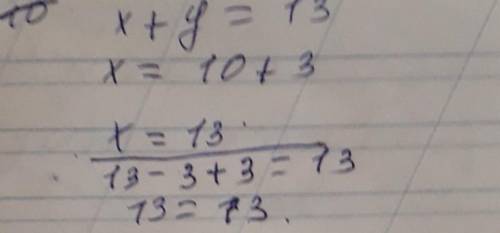 10 x + y = 13
x = 10 + 3
x = 13
13 - 3 + 3 = 13
13 = 13.